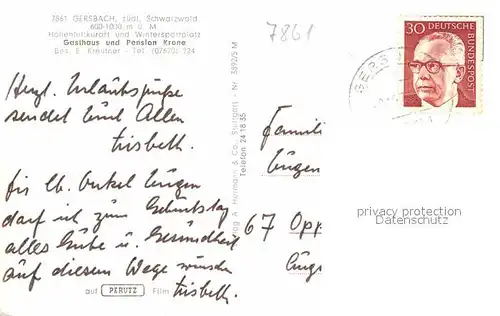 7861 GERSBACH, südl. Schwarzwald
600-1000 m ü. M
Höhenluftkurort und Wintersportplatz
Gasthaus und Pension Krone
Bes. E. Kreutner - Tel. (07620) 224
7861
30 DEUTSCHE BUNDESPOST
GERS
Herzl. Urlaubsgrüße
sendet Euch Allen
Lisbeth.
Für lb. Onkel Eugen
darf ich zum Geburtstag
alles Gute u. Gesundheit
auf diesem Wege wünschen
Lisbeth.
Verlag A. Hermann & Co., Stuttgart - Nr. 3892/5 M
Telefon 24 18 55
Famili
Eugen
67 Opp
Eugs
privacy protection
Datenschutz
auf PERUTZ Film